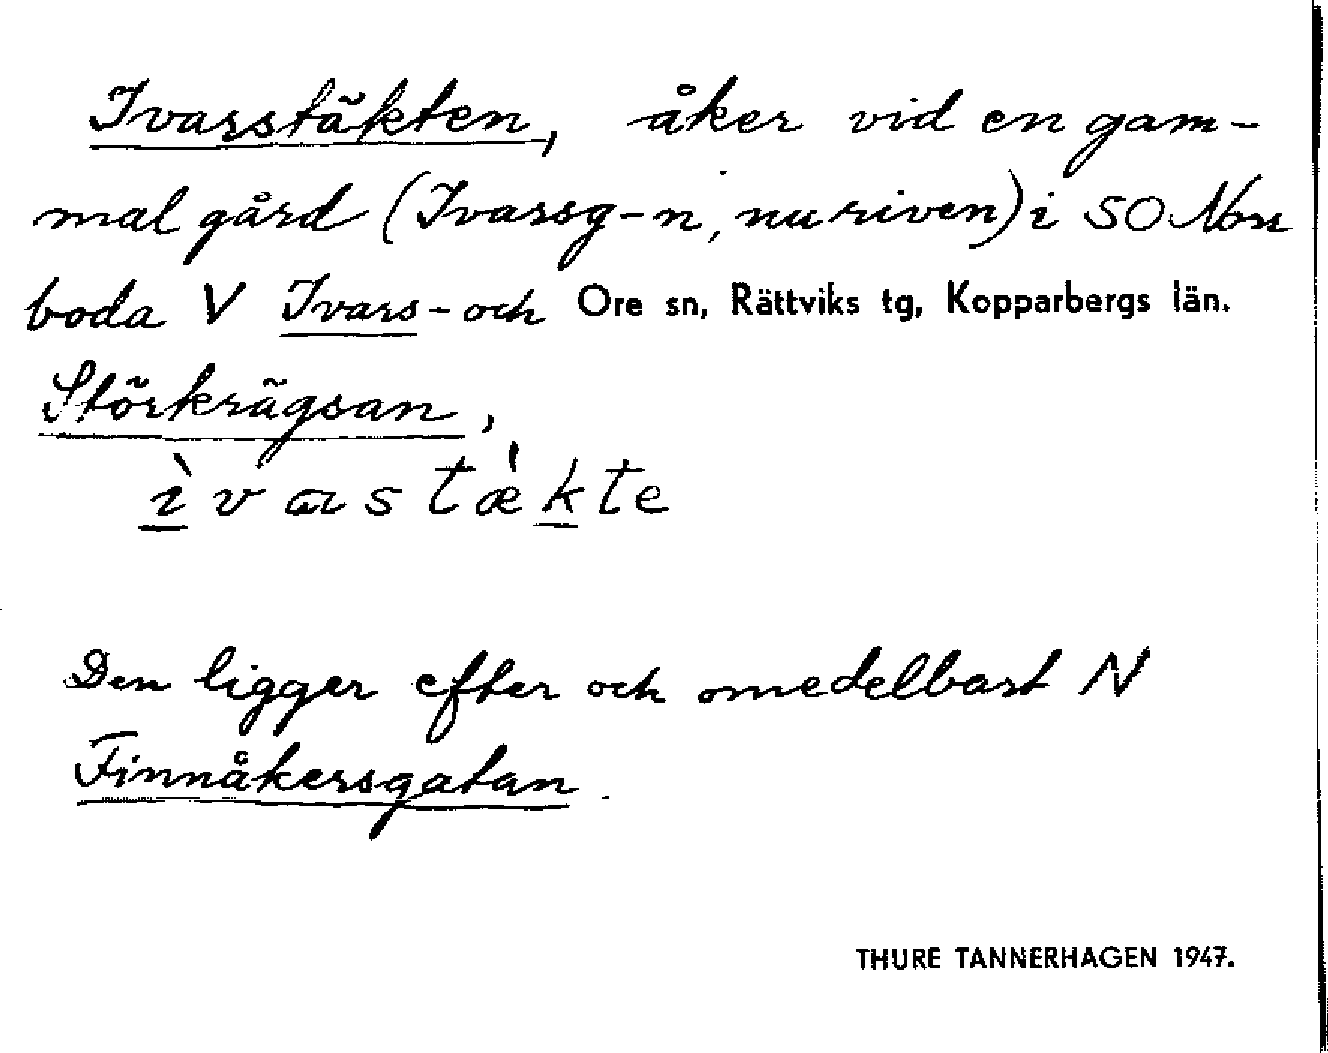 Ivarstäkten, åker vid en gam-
mal gård (Ivarsg-n, nu riven) i SO Norr
boda V Ivars- och Ore sn, Rättviks tg, Kopparbergs län.
Störkrägsan,
ìvɑstǽkte
Den ligger efter och omedelbart N
Finnåkersgatan.
THURE TANNERHAGEN 1947.